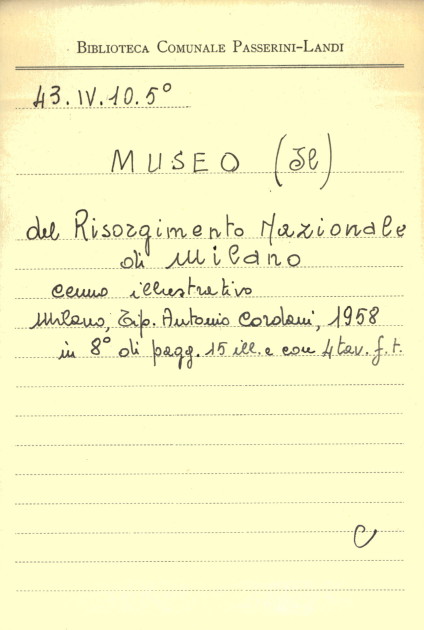 BIBLIOTECA COMUNALE PASSERINI-LANDI
43.IV.10.5°
MUSEO (Il)
del Risorgimento Nazionale
di Milano
cenno illustrativo
Milano, Tip. Antonio Cordani, 1958
in 8° di pagg. 15 ill. e con 4 tav. f.t.
C